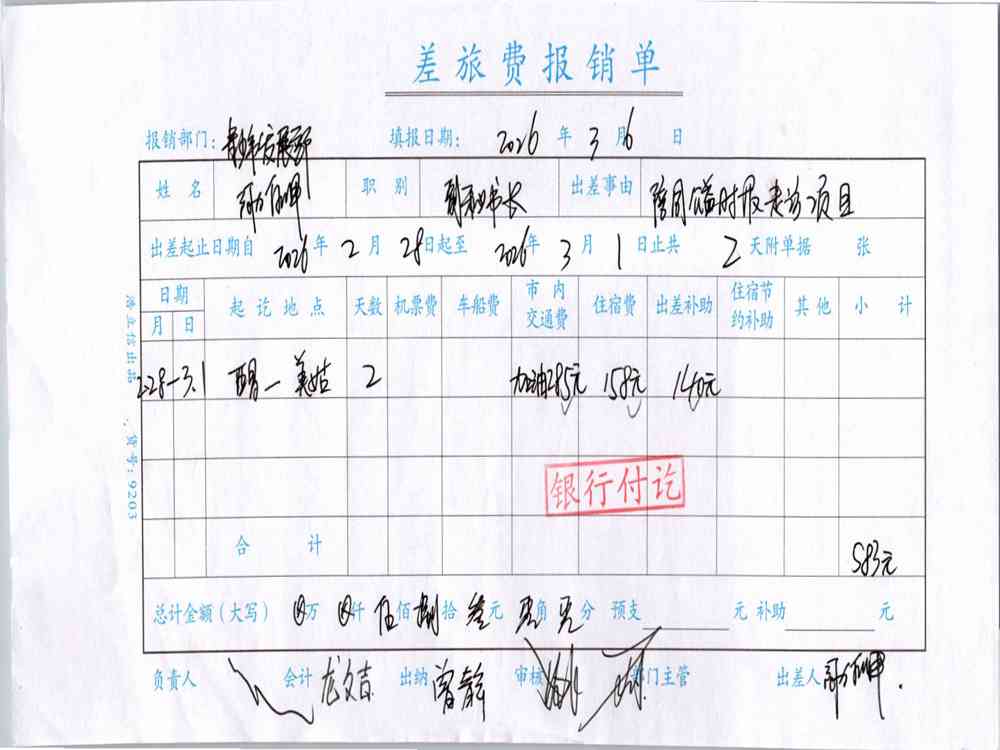 差旅费报销单
报销部门： 发展部 填报日期： 2026 年 3 月 6 日
姓名 职别 副秘书长 出差事由 陪同 时报走访项目
出差起止日期自 2026 年 2 月 28 日起至 2026 年 3 月 1 日止共 2 天附单据 张
日期 起讫地点 天数 机票费 车船费 市内交通费 住宿费 出差补助 住宿节约补助 其他 小计
月 日
2.28-3.1 西昌－美姑 2 加油285元 158元 140元
银行付讫
合计 583元
总计金额（大写） ⊗万 ⊗仟 伍佰 捌拾 叁元 零角 零分 预支 元 补助 元
负责人 会计 龙文吉 出纳 曾静 审核 部门主管 出差人
货号：9203